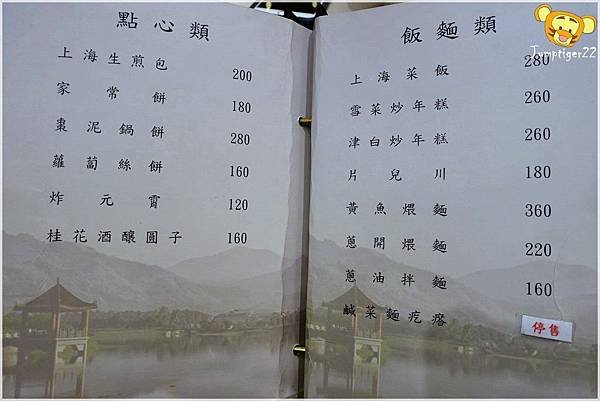 點心類
上海生煎包 200
家常餅 180
棗泥鍋餅 280
蘿蔔絲餅 160
炸元霄 120
桂花酒釀圓子 160
飯麵類
上海菜飯 280
雪菜炒年糕 260
津白炒年糕 260
片兒川 180
黃魚煨麵 360
蔥開煨麵 220
蔥油拌麵 160
鹹菜麵疙瘩 停售
Jumptiger22